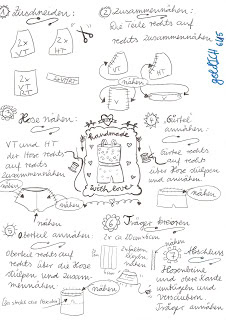 1 Zuschneiden:
2x VT
2x HT
2x
2x VT
Gürtel
2 Zusammennähen:
Die Teile rechts auf
rechts zusammennähen
VT
HT
nähen
VT
3 Hose nähen:
VT und HT
der Hose rechts
auf rechts
zusammennähen
nähen
handmade
with love
4 Gürtel
annähen:
Gürtel rechts
auf rechts
stülpen
und annähen.
nähen
5 Oberteil annähen:
Oberteil rechts auf
rechts über die Hose
stülpen und zusam-
mennähen
nähen
6 Träger kreieren
nähen
7 Abschluss
Hosenbeine
und obere Kante
umbügen und
versäubern.
Träger annähen